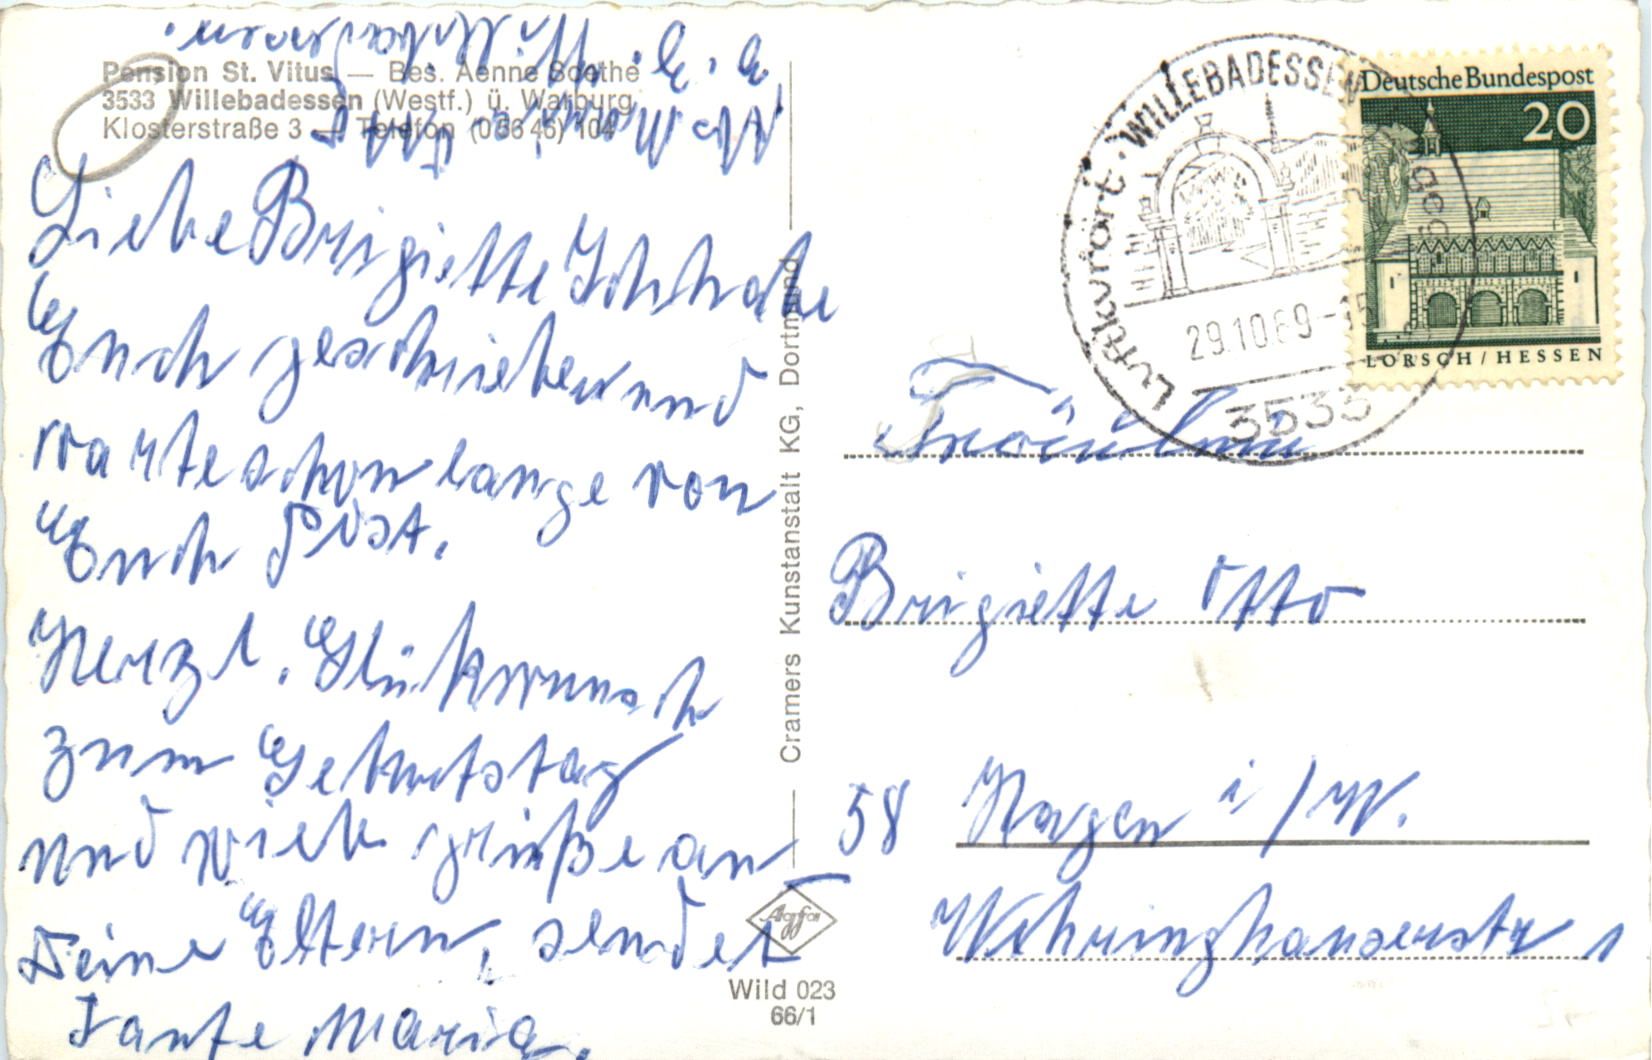 Pension St. Vitus — Bes. Aenne Soethe
3533 Willebadessen (Westf.) ü. Warburg
Klosterstraße 3 — Telefon (05646) 104
Liebe Brigiette Ich habe
Euch geschrieben und
warte schon lange von
Euch Post.
Herzl. Glükwunsch
zum Geburtstag
und viele grüße an
Deine Eltern, sendet
Tante Maria.
Cramers Kunstanstalt KG, Dortmund
Agfa
Wild 023
66/1
Luftkurort · WILLEBADESSEN
29.10.69-15
3533
Deutsche Bundespost
20
LORSCH/HESSEN
Fräulein
Brigiette Otto
58 Hagen i/W.
Wehringhauserstr 1